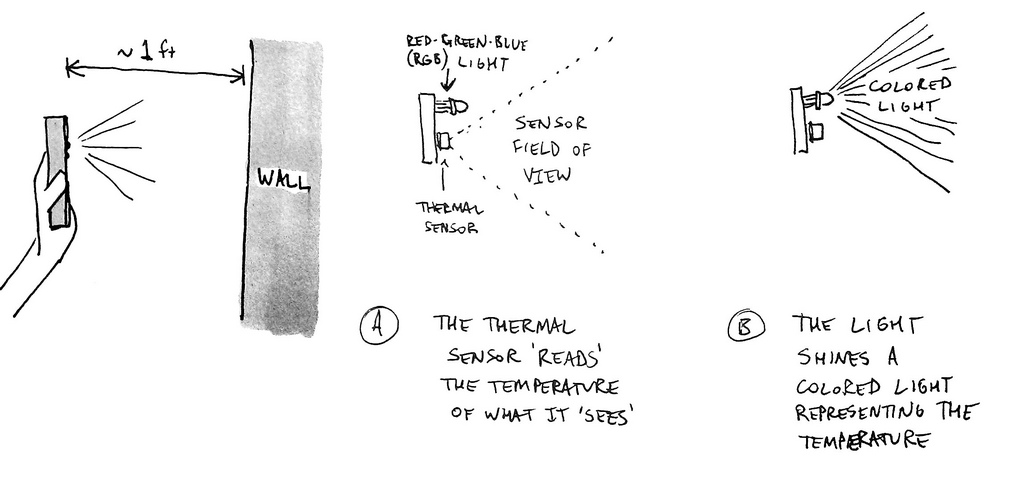 ~ 1 ft
WALL
RED-GREEN-BLUE
(RGB) LIGHT
SENSOR
FIELD OF
VIEW
THERMAL
SENSOR
COLORED
LIGHT
A
THE THERMAL
SENSOR 'READS'
THE TEMPERATURE
OF WHAT IT 'SEES'
B
THE LIGHT
SHINES A
COLORED LIGHT
REPRESENTING THE
TEMPERATURE